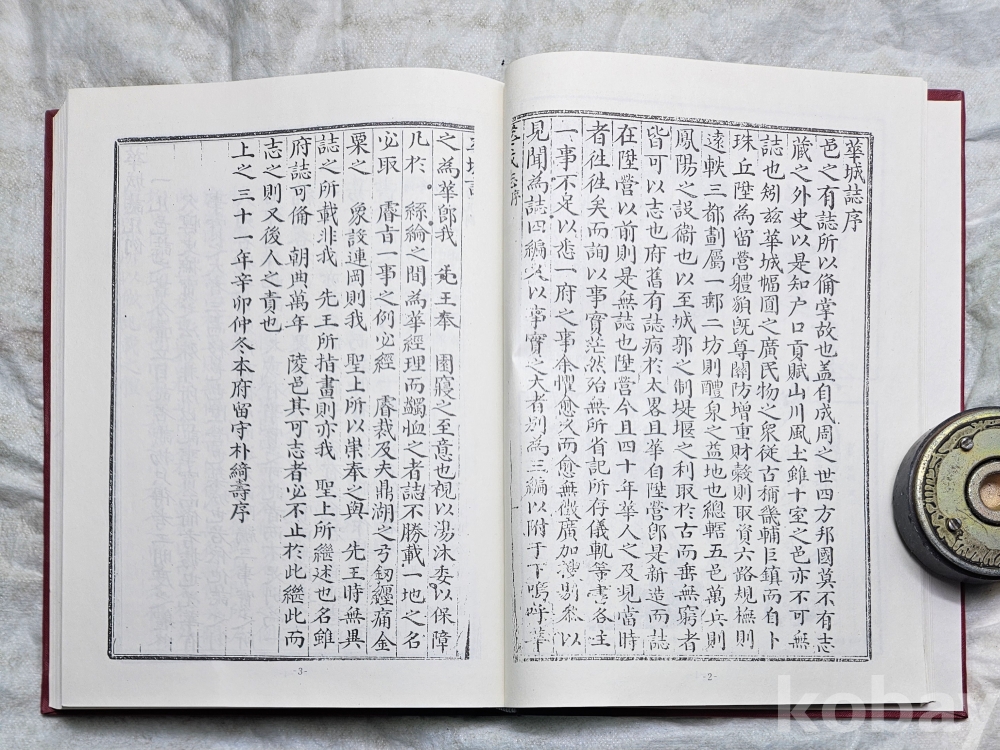 華城誌序
邑之有誌所以備掌故也盖自成周之世四方邦國莫不有志
藏之外史以是知户口貢賦山川風土雖十室之邑亦不可無
誌也矧玆華城幅圓之廣民物之衆從古稱畿輔巨鎮而自卜
珠丘陞為留營軆貌旣尊關防增重財穀則取資六路規橅則
遠軼三都劃屬一郵二坊則醴泉之益地也總轄五邑萬兵則
鳳陽之設衞也以至城郭之制堤堰之利取於古而垂無窮者
皆可以志也府舊有誌病於太畧且華自陞營卽是新造而誌
在陞營以前則是無誌也陞營今且四十年華人之及見當時
者徃徃矣而詢以事實茫然殆無所省記所存儀軌等書各主
一事不足以悉一府之事余懼愈久而愈無徵廣加溲剔叅以
見聞為誌四編又以事實之大者別為三編以附于下嗚呼華
華城誌序
-2-
之為華卽我 先王奉 園寢之至意也視以湯沐委以保障
凡於 絲綸之間為華經理而蠲恤之者誌不勝載一地之名
必取 睿旨一事之例必經 睿裁及夫鼎湖之弓釰纒痛金
粟之 象設連岡則我 聖上所以崇奉之與 先王時無異
誌之所載非我 先王所指畫則亦我 聖上所繼述也名雖
府誌可備 朝典萬年 陵邑其可志者必不止於此繼此而
志之則又後人之責也
上之三十一年辛卯仲冬本府留守朴綺壽序
-3-
kobay